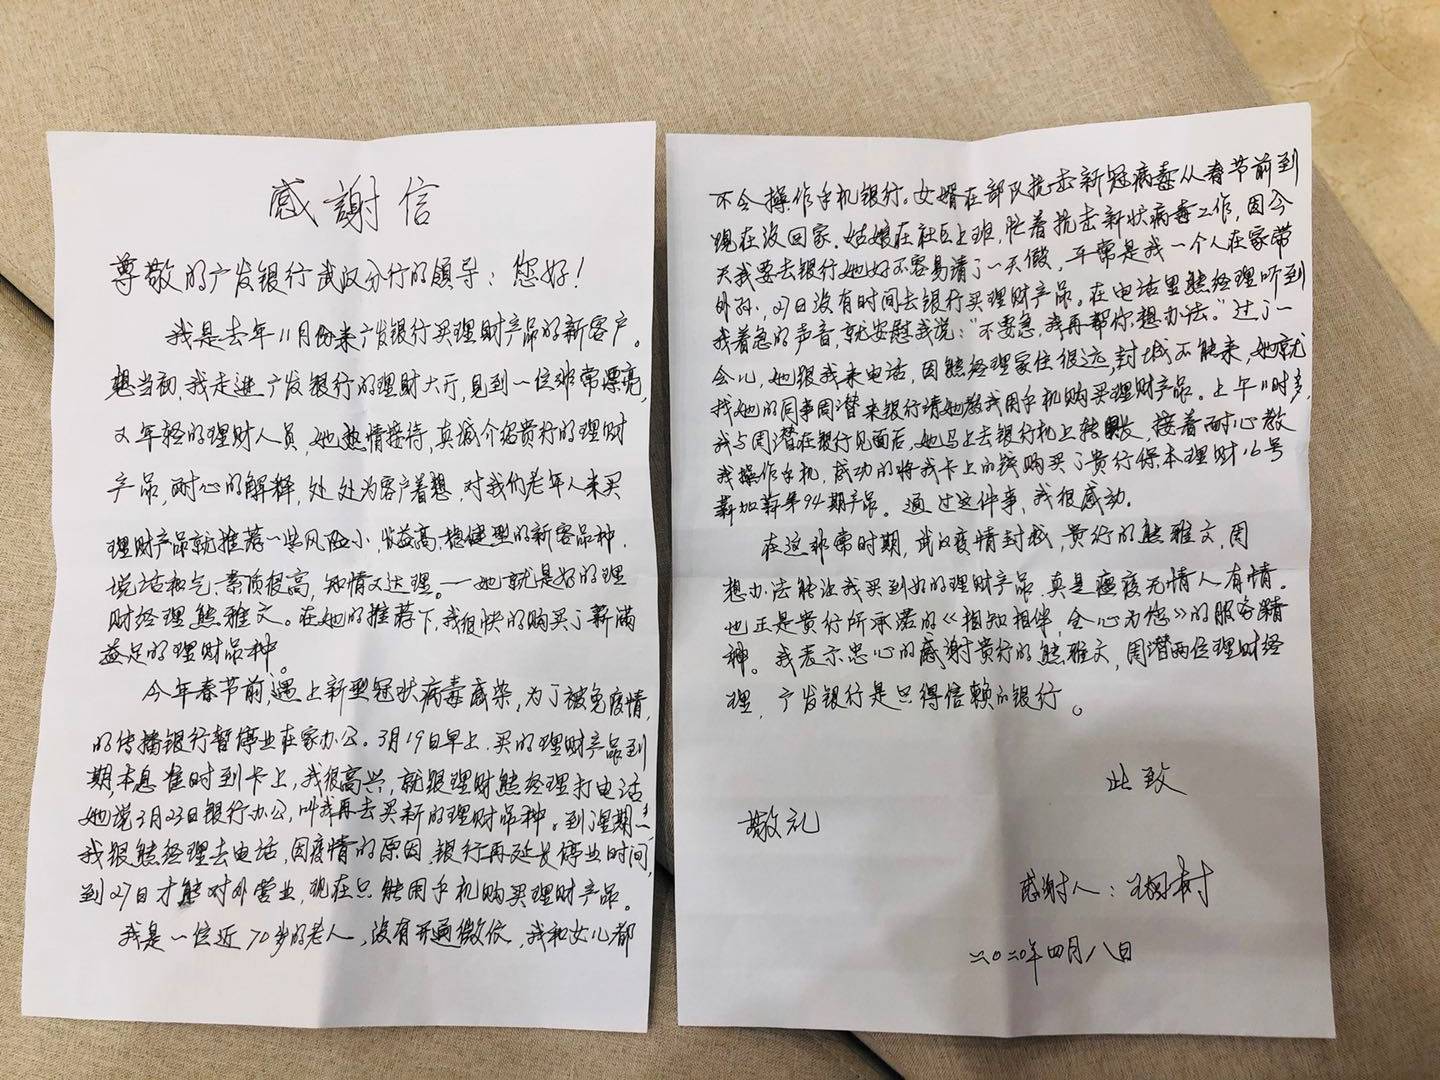 感謝信
尊敬的广发银行武汉分行的领导：您好！
我是去年11月份来广发银行买理财产品的新客户。
想当初，我走进广发银行的理财大厅，见到一位非常漂亮，
又年轻的理财人员，她热情接待，真诚介绍贵行的理财
产品，耐心的解释，处处为客户着想，对我们老年人来买
理财产品就推荐一些风险小，收益高，稳健型的新客品种，
说话和气，素质很高，知情又达理。——她就是好的理
财经理熊雅文。在她的推荐下，我很快的购买了薪满
益足的理财品种。
今年春节前，遇上新型冠状病毒感染，为了被免疫情，
的传播银行暂停业在家办公。3月19日早上，买的理财产品到
期，本息准时到卡上，我很高兴，就跟理财熊经理打电话
她说3月23日银行办公，叫我再去买新的理财品种。到了星期一
我跟熊经理去电话，因疫情的原因，银行再延长停业时间，
到27日才能对外营业，现在只能用手机购买理财产品。
我是一位近70岁的老人，没有开通微信，我和女儿都
不会操作手机银行。女婿在部队抗击新冠病毒从春节前到
现在没回家，姑娘在社区上班，忙着抗击新状病毒工作，因今
天我要去银行她好不容易请了一天假，平常是我一个人在家带
外孙，27日没有时间去银行买理财产品。在电话里熊经理听到
我着急的声音，就安慰我说：“不要急，我再帮你想办法。”过了一
会儿，她跟我来电话，因熊经理家住很远，封城不能来，她就
找她的同事周潜来银行请她教我用手机购买理财产品。上午11时多，
我与周潜在银行见面后，她马上去银行机上转账，接着耐心教
我操作手机，成功的将我卡上的钱购买了贵行保本理财16号
薪加薪第94期产品。通过这件事，我很感动。
在这非常时期，武汉疫情封城，贵行的熊雅文，周
想办法能让我买到好的理财产品，真是瘟疫无情人有情。
也正是贵行所承诺的《相知相伴，全心为您》的服务精
神。我表示忠心的感谢贵行的熊雅文，周潜两位理财经
理，广发银行是只得信赖的银行。
此致
敬礼
感谢人：
二〇二〇年四月八日